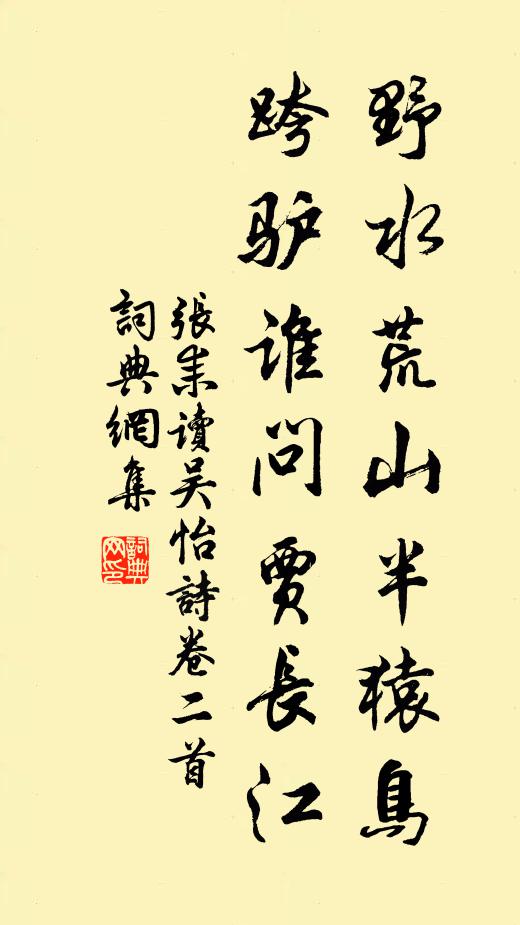 野水荒山半猿鳥
跨驴谁問賈長江
張耒讀吴怡詩卷二首
詞典網集
詞典網印